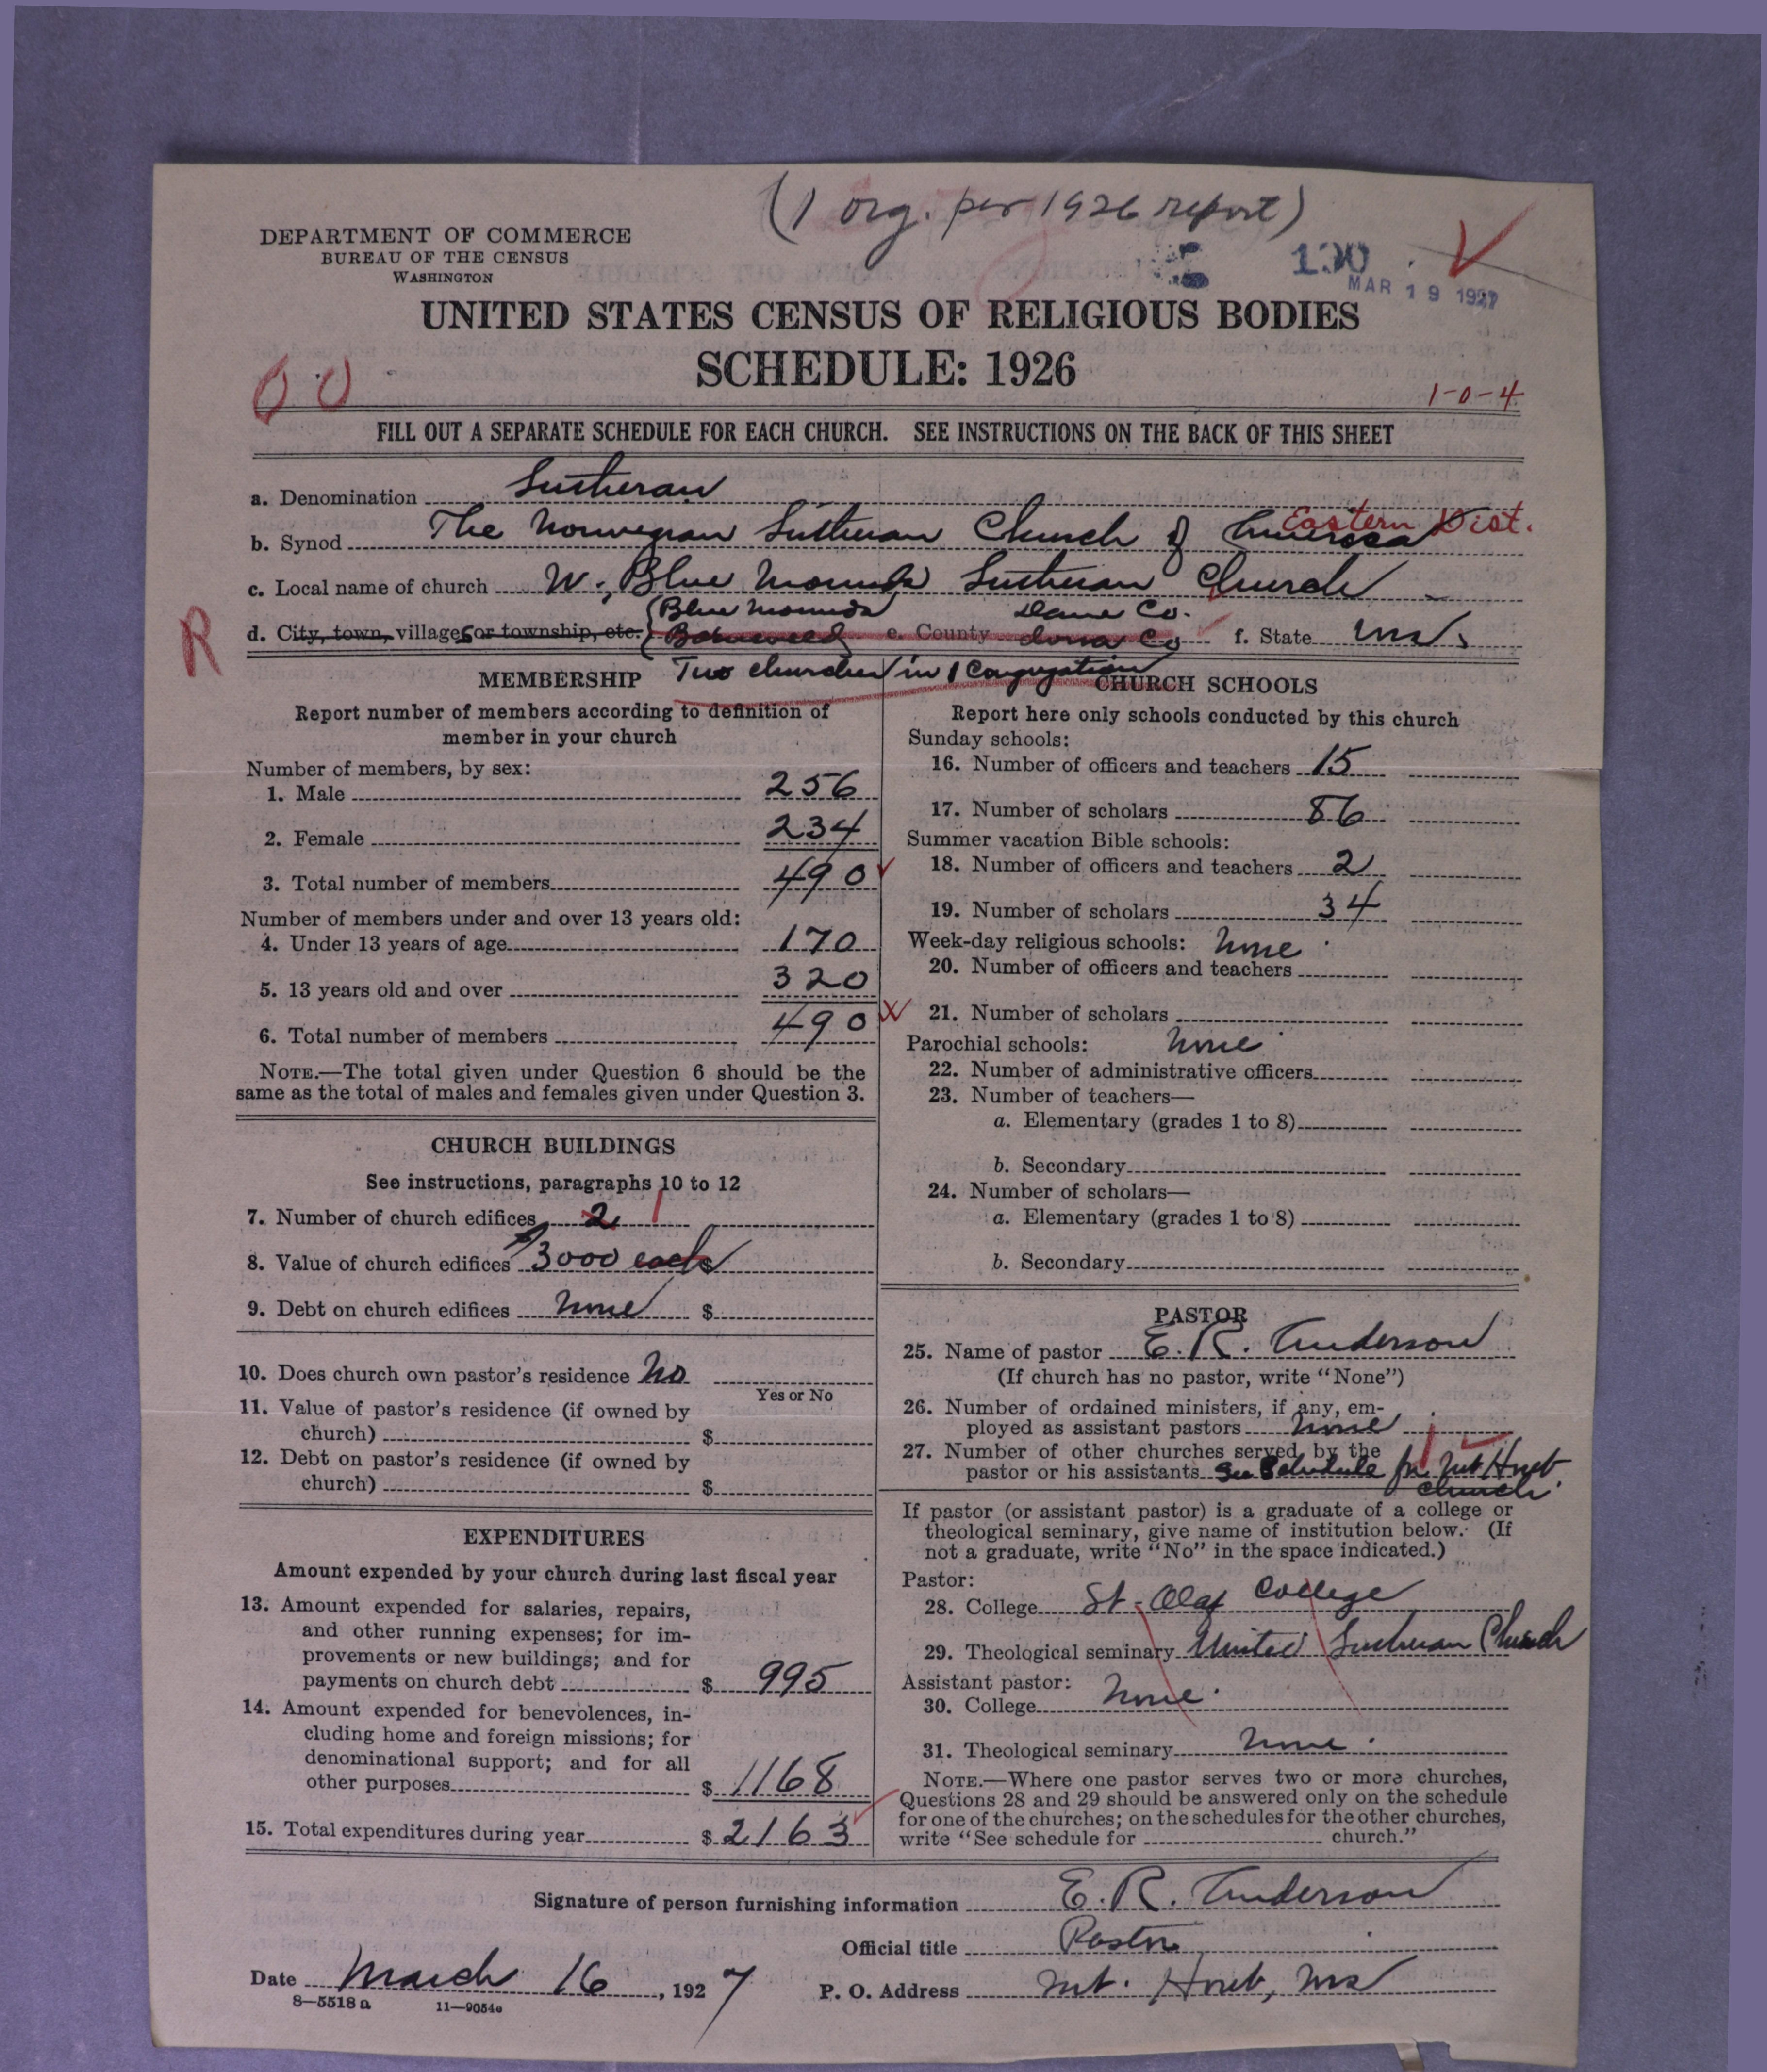 (1 org. per 1926 report)
DEPARTMENT OF COMMERCE
BUREAU OF THE CENSUS
WASHINGTON
MAR 19 1927
UNITED STATES CENSUS OF RELIGIOUS BODIES
SCHEDULE: 1926
00
1-0-4
FILL OUT A SEPARATE SCHEDULE FOR EACH CHURCH. SEE INSTRUCTIONS ON THE BACK OF THIS SHEET
a. Denomination Lutheran
b. Synod The Norwegian Lutheran Church of America Eastern Dist.
c. Local name of church W. Blue Mounds Lutheran Church
Blue Mounds Dane Co.
R d. City, town, villages or township, etc. e. County Iowa Co f. State Wis.
Two churches in 1 Congregation
MEMBERSHIP
Report number of members according to definition of
member in your church
Number of members, by sex:
1. Male 256
2. Female 234
3. Total number of members 490
Number of members under and over 13 years old:
4. Under 13 years of age 170
5. 13 years old and over 320
6. Total number of members 490
NOTE.—The total given under Question 6 should be the
same as the total of males and females given under Question 3.
CHURCH BUILDINGS
See instructions, paragraphs 10 to 12
7. Number of church edifices 2 1
8. Value of church edifices 3000 each
9. Debt on church edifices None $
10. Does church own pastor's residence No
Yes or No
11. Value of pastor's residence (if owned by
church) $
12. Debt on pastor's residence (if owned by
church) $
EXPENDITURES
Amount expended by your church during last fiscal year
13. Amount expended for salaries, repairs,
and other running expenses; for im-
provements or new buildings; and for
payments on church debt $ 995
14. Amount expended for benevolences, in-
cluding home and foreign missions; for
denominational support; and for all
other purposes $ 1168
15. Total expenditures during year $ 2163
CHURCH SCHOOLS
Report here only schools conducted by this church
Sunday schools:
16. Number of officers and teachers 15
17. Number of scholars 86
Summer vacation Bible schools:
18. Number of officers and teachers 2
19. Number of scholars 34
Week-day religious schools: None
20. Number of officers and teachers
21. Number of scholars
Parochial schools: None
22. Number of administrative officers
23. Number of teachers—
a. Elementary (grades 1 to 8)
b. Secondary
24. Number of scholars—
a. Elementary (grades 1 to 8)
b. Secondary
PASTOR
25. Name of pastor E. R. Anderson
(If church has no pastor, write "None")
26. Number of ordained ministers, if any, em-
ployed as assistant pastors None
27. Number of other churches served by the
pastor or his assistants See Schedule for Mt Horeb
church.
If pastor (or assistant pastor) is a graduate of a college or
theological seminary, give name of institution below. (If
not a graduate, write "No" in the space indicated.)
Pastor:
28. College St. Olaf College
29. Theological seminary United Lutheran Church
Assistant pastor:
30. College None.
31. Theological seminary None.
NOTE.—Where one pastor serves two or more churches,
Questions 28 and 29 should be answered only on the schedule
for one of the churches; on the schedules for the other churches,
write "See schedule for church."
Signature of person furnishing information E. R. Anderson
Official title Pastor
Date March 16, 1927 P. O. Address Mt. Horeb, Wis
8—5518 a 11—9054a